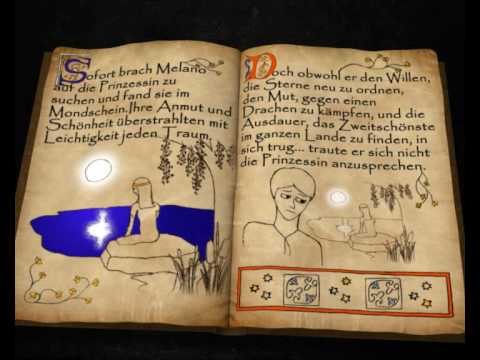 Sofort brach Melano
auf die Prinzessin zu
suchen und fand sie im
Mondschein.Ihre Anmut und
Schönheit überstrahlten mit
Leichtigkeit jeden Traum.
Doch obwohl er den Willen,
die Sterne neu zu ordnen,
den Mut, gegen einen
Drachen zu kämpfen, und die
Ausdauer, das Zweitschönste
im ganzen Lande zu finden, in
sich trug... traute er sich nicht
die Prinzessin anzusprechen.